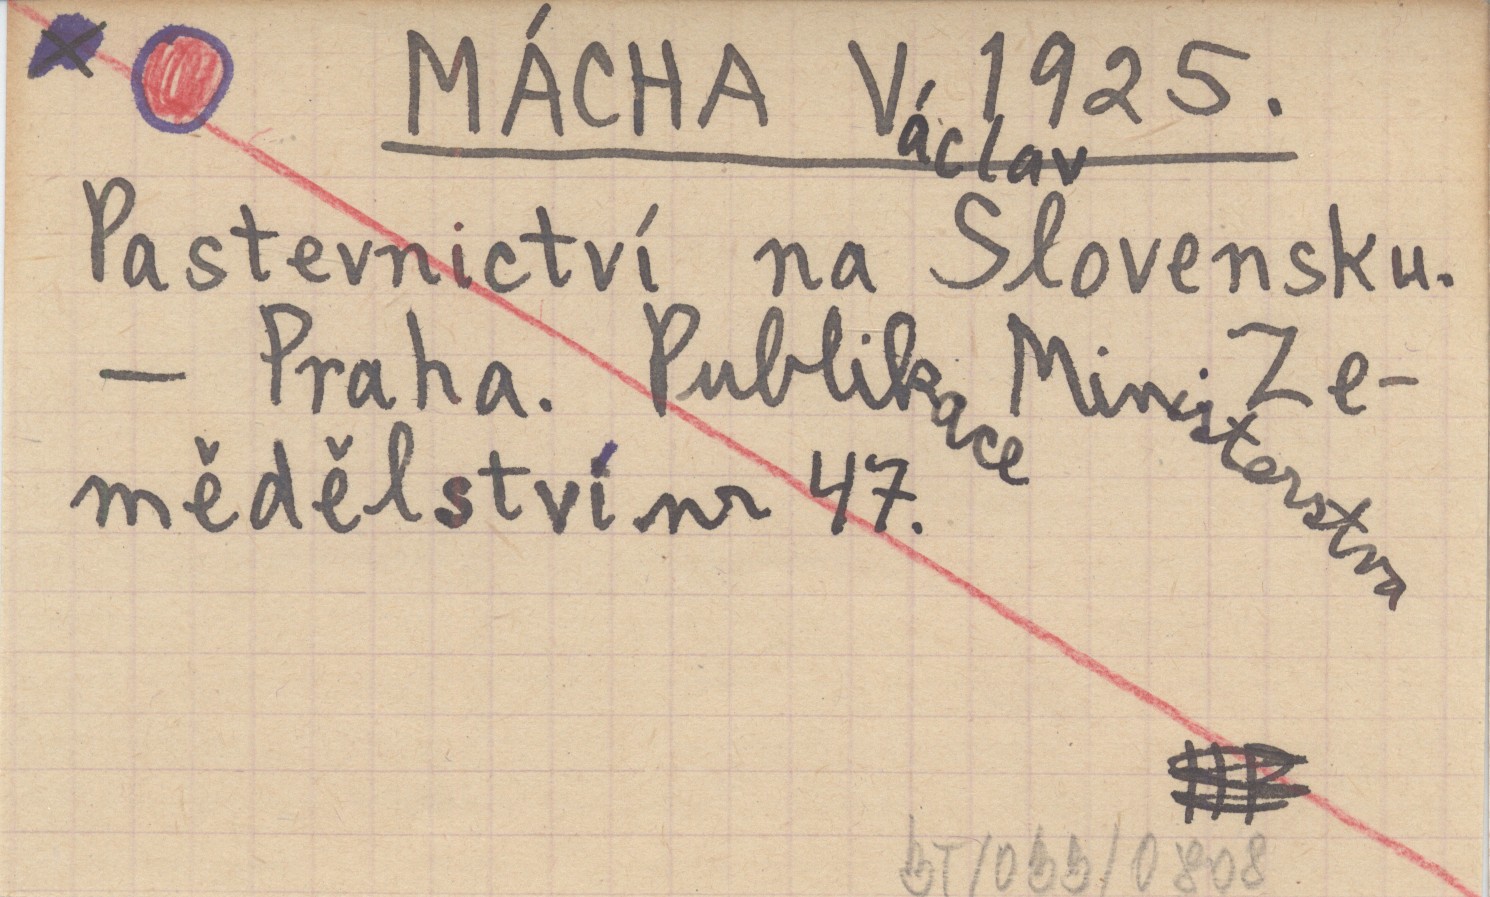 MÁCHA Václav 1925.
Pastevnictví na Slovensku.
— Praha. Publikace Ministerstva Ze-
mědělství nr 47.